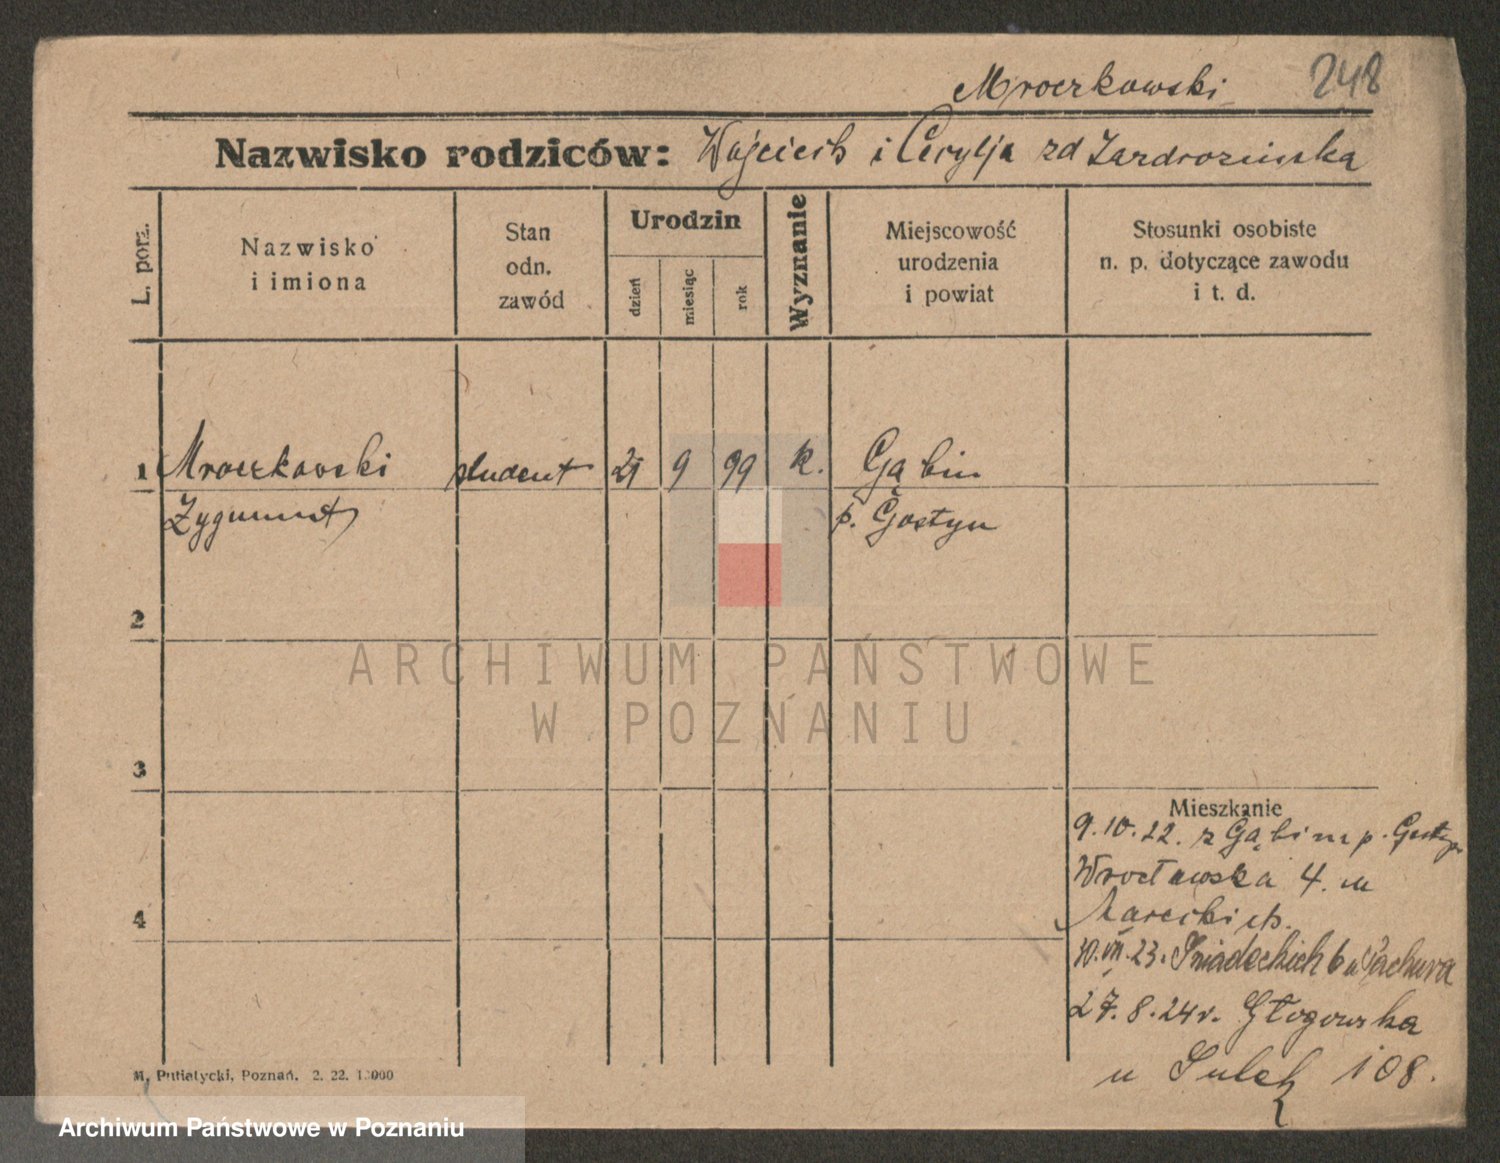 Mroczkowski 248
Nazwisko rodziców: Wojciech i Cecylja zd
L. porz.
Nazwisko
i imiona
Stan
odn.
zawód
Urodzin
dzień
miesiąc
rok
Wyznanie
Miejscowość
urodzenia
i powiat
Stosunki osobiste
n. p. dotyczące zawodu
i t. d.
1 Mroczkowski student 21 9 99 k. Gąbin
Zygmunt p. Gostyn
2
3
4
Mieszkanie
9.10.22. z Gąbin p. Gostyn
Wrocławska 4. u
30.VII.23. Śniadeckich 6 u
27.8.24r. Głogowska
u 108.
M. Putiatycki, Poznań. 2. 22. 10000
ARCHIWUM PAŃSTWOWE
W POZNANIU
Archiwum Państwowe w Poznaniu